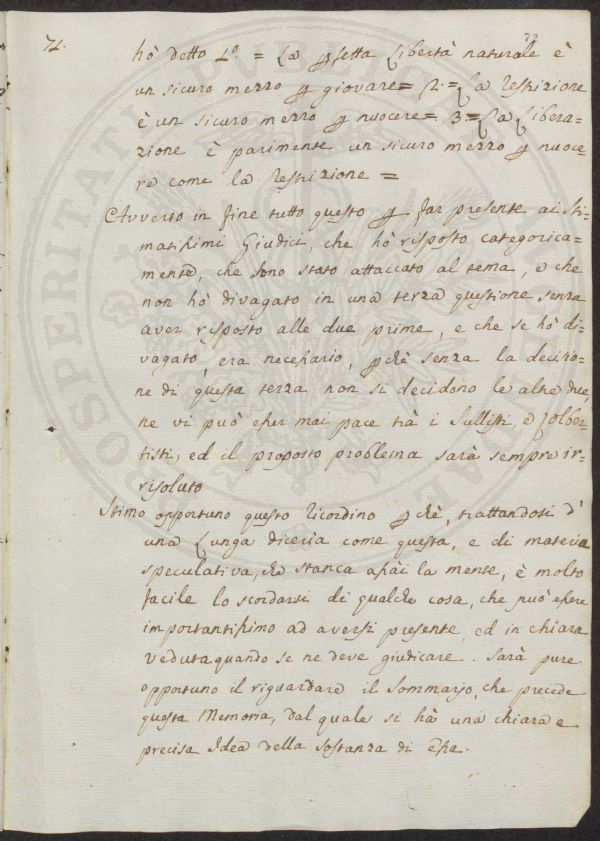 71.
73
hò detto 1.º = La pfetta Libertà naturale è
un sicuro mezzo p giovare = 2.º = La restrizione
è un sicuro mezzo p nuocere = 3 = La Libera=
zione è parimente un sicuro mezzo p nuoce=
re come la restrizione =
Avverto in fine tutto questo p far presente ai Sti=
matissimi Giudici, che hò risposto categorica=
mente, che sono stato attaccato al tema, e che
non hò divagato in una terza questione senza
aver risposto alle due prime, e che se hò di=
vagato, era necessario, pchè senza la decisio=
ne di questa terza non si decidono le altre due,
ne vi può esser mai pace trà i Sullisti, e Colber=
tisti, ed il proposto problema sarà sempre ir=
risoluto
Stimo opportuno questo ricordino pchè, trattandosi d'
una Lunga diceria come questa, e di materia
speculativa, che stanca assài la mente, è molto
facile lo scordarsi di qualche cosa, che può essere
importantissimo ad aversi presente, ed in chiara
veduta quando se ne deve giudicare. Sarà pure
opportuno il riguardare il Sommario, che precede
questa Memoria, dal quale si hà una chiara e
precisa Idea della sostanza di essa.
PROSPERITATI PUBLICAE